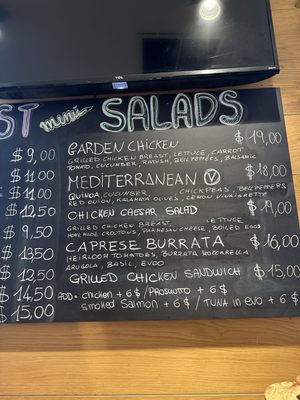 TCL
ST mini SALADS
$ 9,00
$ 11,00
$ 11,00
$ 12,50
$ 9,50
$ 13,50
$ 12,50
$ 14,50
$ 15,00
GARDEN CHICKEN $ 19,00
GRILLED CHICKEN BREAST, LETTUCE, CARROT
TOMATO, CUCUMBER, RADISH, BELLPEPPERS, BALSAMIC
MEDITERRANEAN V $ 18,00
QUINOA, CUCUMBER, CHICKPEAS, BELLPEPPERS
RED ONION, KALAMATA OLIVES, LEMON VINAIGRETTE
CHICKEN CAESAR SALAD $ 19,00
GRILLED CHICKEN BREAST, LETTUCE
HOMEMADE CROUTONS, PARMESAN CHEESE, BOILED EGGS
CAPRESE BURRATA $ 16,00
HEIRLOOM TOMATOES, BURRATA MOZZARELLA
ARUGOLA, BASIL, EVOO
GRILLED CHICKEN SANDWICH $ 15,00
ADD: chicken + 6 $ / PROSCIUTTO + 6 $
smoked Salmon + 6 $ / TUNA in evo + 6 $